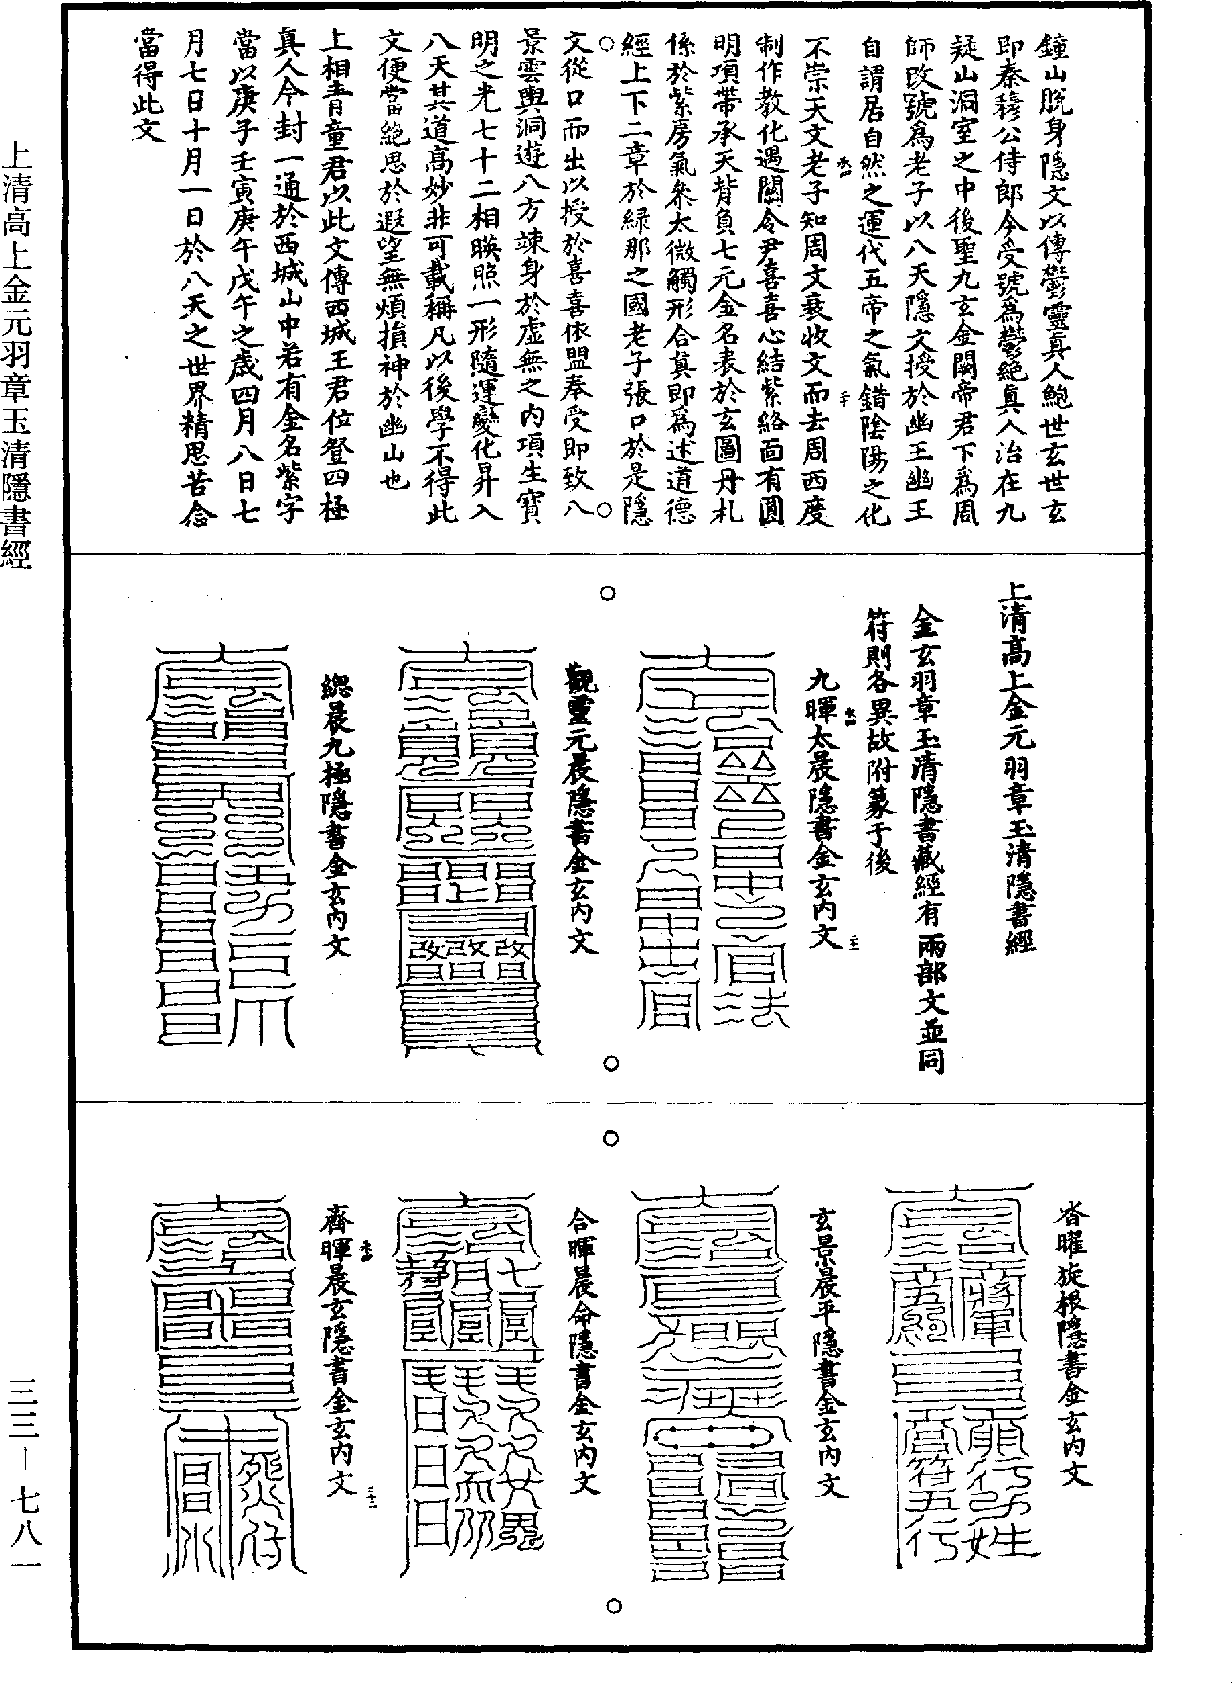 鐘山脫身隱文以傳鬱靈真人鮑世玄世玄
即秦穆公侍郎今受號為鬱絕真人治在九
疑山洞室之中後聖九玄金闕帝君下為周
師改號為老子以八天隱文授於幽王幽王
自謂居自然之運代五帝之氣錯陰陽之化
不崇天文老子知周文衰收文而去周西度
制作教化遇關令尹喜喜心結紫絡面有圓
明項帶承天背負七元金名表於玄圖丹札
係於紫房氣參太微觸形合真即為述道德
經上下二章於緑那之國老子張口於是隱
文從口而出以授於喜喜依盟奉受即致八
景雲輿洞遊八方竦身於虛無之內項生寶
明之光七十二相暎照一形隨運變化昇入
八天其道高妙非可載稱凡以後學不得此
文便當絕思於遐望無煩損神於幽山也
上相青童君以此文傳西城王君位登四極
真人今封一通於西城山中若有金名紫字
當以庚子壬寅庚午戊午之歲四月八日七
月七日十月一日於八天之世界精思苦念
當得此文
上清高上金元羽章玉清隱書經
金玄羽章玉清隱書藏經有兩部文並同
符則各異故附篆于後
九暉太晨隱書金玄內文
觀靈元晨隱書金玄內文
總晨九極隱書金玄內文
沓曜旋根隱書金玄內文
玄景晨平隱書金玄內文
合暉晨命隱書金玄內文
齊暉晨玄隱書金玄內文
上清高上金元羽章玉清隱書經
三三—七八一